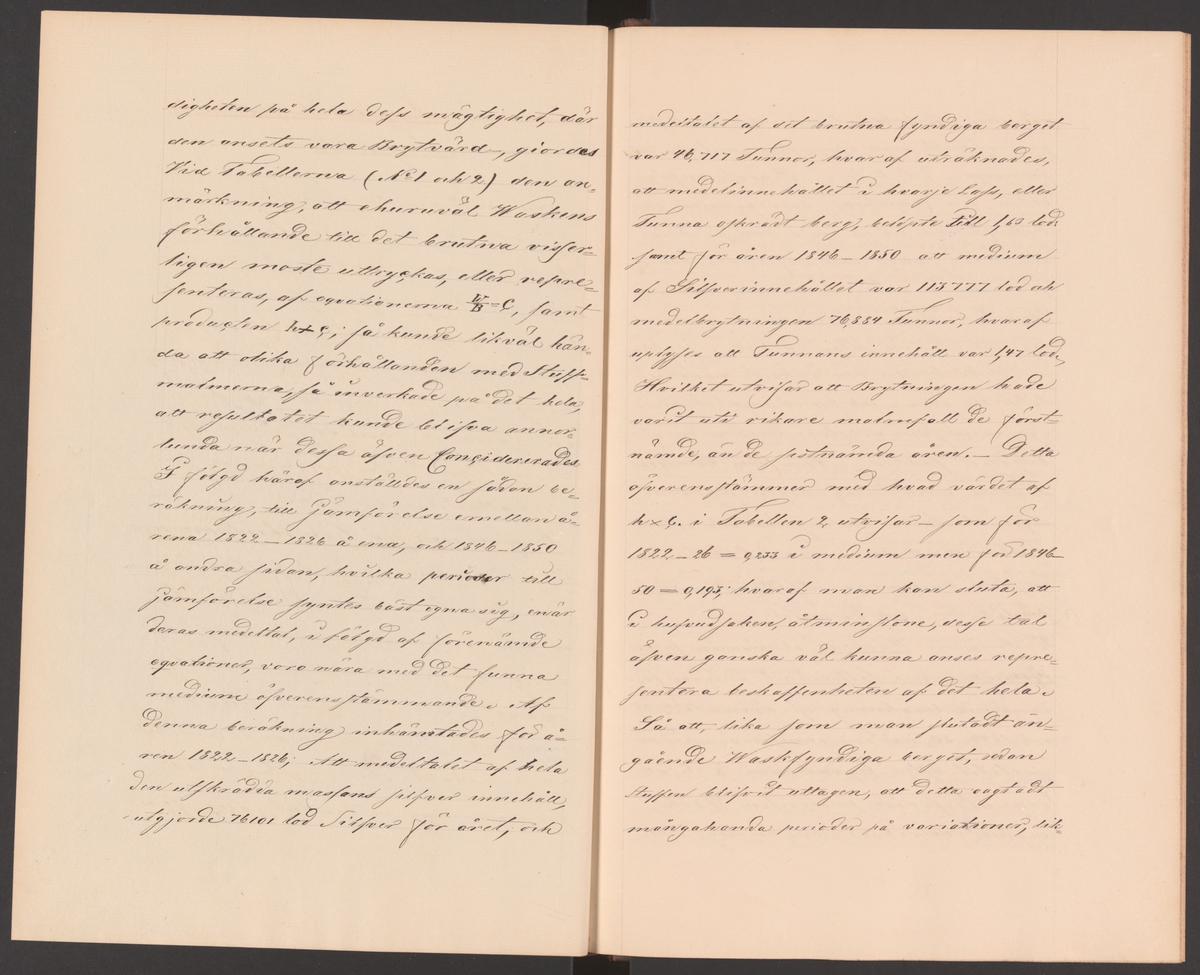 digheten på hela dess mägtighet, där
den ansets vara Brytvärd, giordes
Vid Tabellerna (No 1 och 2) den an=
märkning, att ehuruväl Waskens
förhållande till det brutna visser=
ligen moste uttryckas, eller repre=
senteras, af eqvationerna W/B = Ç, samt
producten h×ç; så kunde likväl hän=
da att olika förhållanden med Stuff=
malmerna, så inverkade på det hela,
att resultatet kunde blifva annor=
lunda när dessa äfven Conçidererades
I fölgd häraf anställdes en sådan be=
räkning, till Jämförelse emellan å=
rena 1822 – 1826 å ena, och 1846 – 1850
å andra sidan, hvilka perioder till
jämförelse syntes bäst egna sig, enär
deras medeltal, i fölgd af förenämde
eqvationer, voro nära med det funna
medium öfverensstämmande. Af
denna beräkning inhämtades för å=
ren 1822 – 1826; Att medeltalet af hela
den utskrädda massans silfver innehåll,
utgjorde 76101 lod Silfver för året, och
medeltalet af det brutna fyndiga berget
var 46,717 Tunnor, hvaraf uträknades,
att medelinnehållet i hvarje Lass, eller
Tunna oskrädt berg, belöpte till 1,63 lod.
samt för åren 1846 – 1850 att medium
af Silfverinnehållet var 113777 lod och
medelbrytningen 76,884 Tunnor, hvaraf
uplyses att Tunnans innehåll var 1,47 lod,
Hvilket utvisar att Brytningen hade
varit uti rikare malmfall de först=
nämde, än de sistnämda åren. – Detta
öfverensstämmer med hvad värdet af
h×ç. i Tabellen 2, utvisar – som för
1822 – 26 = 0,233 i medium men för 1846 –
50 = 0,193; hvaraf man kan sluta, att
i hufvudsaken, åtminstone, desse tal
äfven ganska väl kunna anses repre=
sentera beskaffenheten af det hela.
Så att, lika som man slutadt än=
gående Waskfyndiga berget, sedan
stuffen blifvit uttagen, att detta ägtadt
mångahanda perioder på variationer, lik=